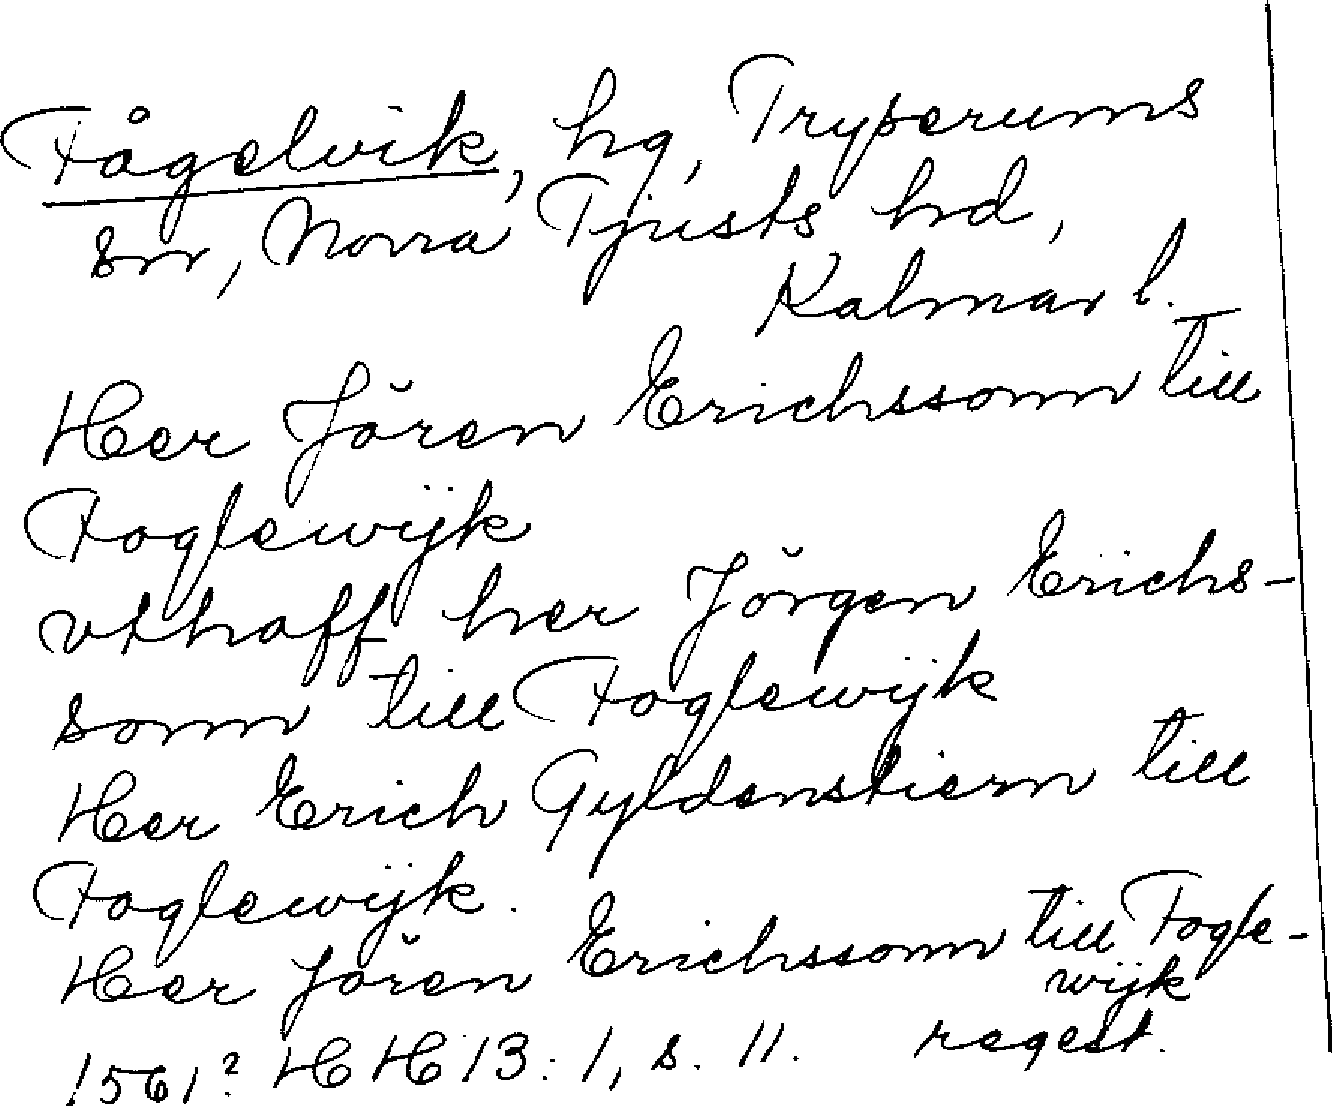 Fågelvik, hg, Tryserums
sn, Norra Tjusts hd,
Kalmar l.
Her Jŏren Erichssonn till
Foglewijk
vthaff her Jŏrgen Erichs-
sonn till Foglewijk
Her Erich Gyldenstiern till
Foglewijk.
Her Jŏren Erichssonn till Fogle-
wijk
1561? HH 13:1, s. 11. regest.